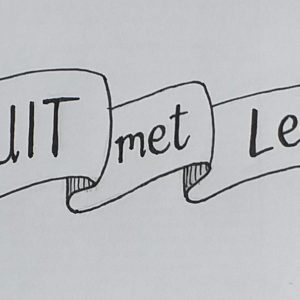 UIT met Le